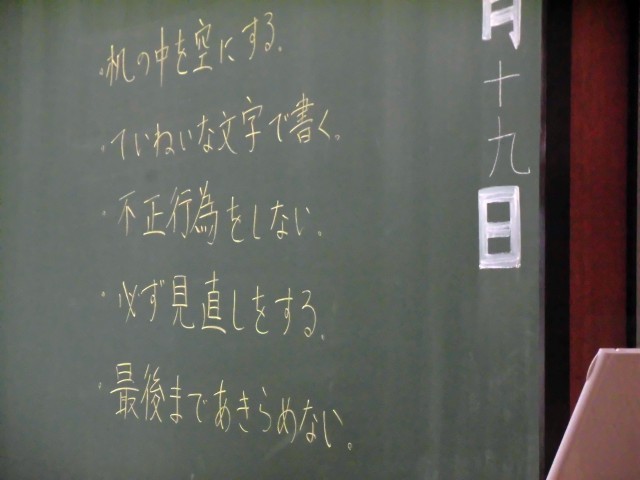 月十九日
・机の中を空にする。
・ていねいな文字で書く。
・不正行為をしない。
・必ず見直しをする。
・最後まであきらめない。